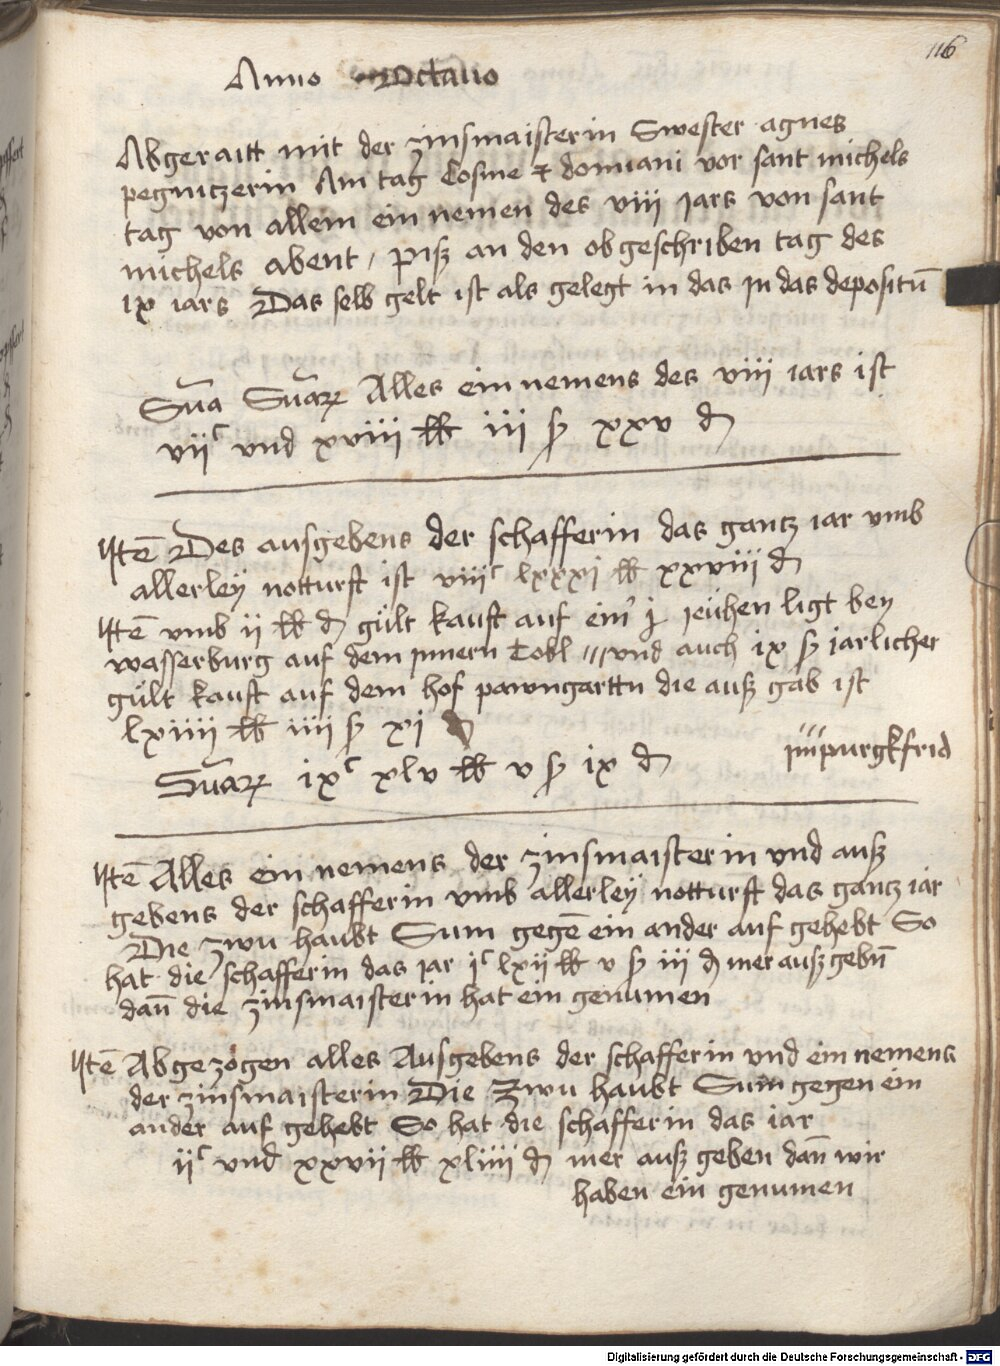 116
Anno Octauo
Abgeraitt mit der zinsmaisterin Swester agnes
pegnitzerin Am tag Cosme & domiani vor sant michels
tag von allem ein nemen des viii jars von sant
michels abent / piß an den obgeschriben tag des
ix iars Das selb gelt ist als gelegt in das jn das depositū
Sūa Sūaꝝ Alles ein nemens des viii iars ist
viiᶜ vnd xviii ℔ iii ß xxv ₰
Jtē Des ausgebens der schafferin das gantz iar vmb
allerley notturft ist viiiᶜ lxxxi ℔ xxviii ₰
Jtē vmb ii ℔ ₰ gült kauft auf eim j jeuchen ligt bey
wasserburg auf dem jnnern Cobl vnd auch ix ß jarlicher
gült kauft auf dem hof pawngarttn die auß gab ist
lxiiii ℔ iiii ß xi ₰
jm purgkfrid
Sūaꝝ ixᶜ xlv ℔ v ß ix ₰
Jtē Alles ein nemens der zinsmaisterin vnd auß
gebens der schafferin vmb allerley notturft das gantz iar
Die zwu haubt Sum gegē ein ander auf gehebt So
hat die schafferin das jar jᶜ lxii ℔ v ß iii ₰ mer auß gebn̄
dan̄ die zinsmaisterin hat ein genumen
Jtē Abgezogen alles Ausgebens der schafferin vnd ein nemens
der zinsmaisterin Die zwu haubt Sum gegen ein
ander auf gehebt So hat die schafferin das iar
iiᶜ vnd xxvii ℔ xliiii ₰ mer auß geben dan̄ wir
haben ein genumen
Digitalisierung gefördert durch die Deutsche Forschungsgemeinschaft - DFG